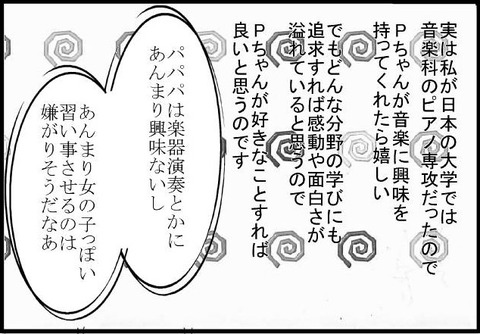 実は私が日本の大学では
音楽科のピアノ専攻だったので
Pちゃんが音楽に興味を
持ってくれたら嬉しい
でもどんな分野の学びにも
追求すれば感動や面白さが
溢れていると思うので
Pちゃんが好きなことすれば
良いと思うのです
パパパは楽器演奏とかに
あんまり興味ないし
あんまり女の子っぽい
習い事させるのは
嫌がりそうだなあ